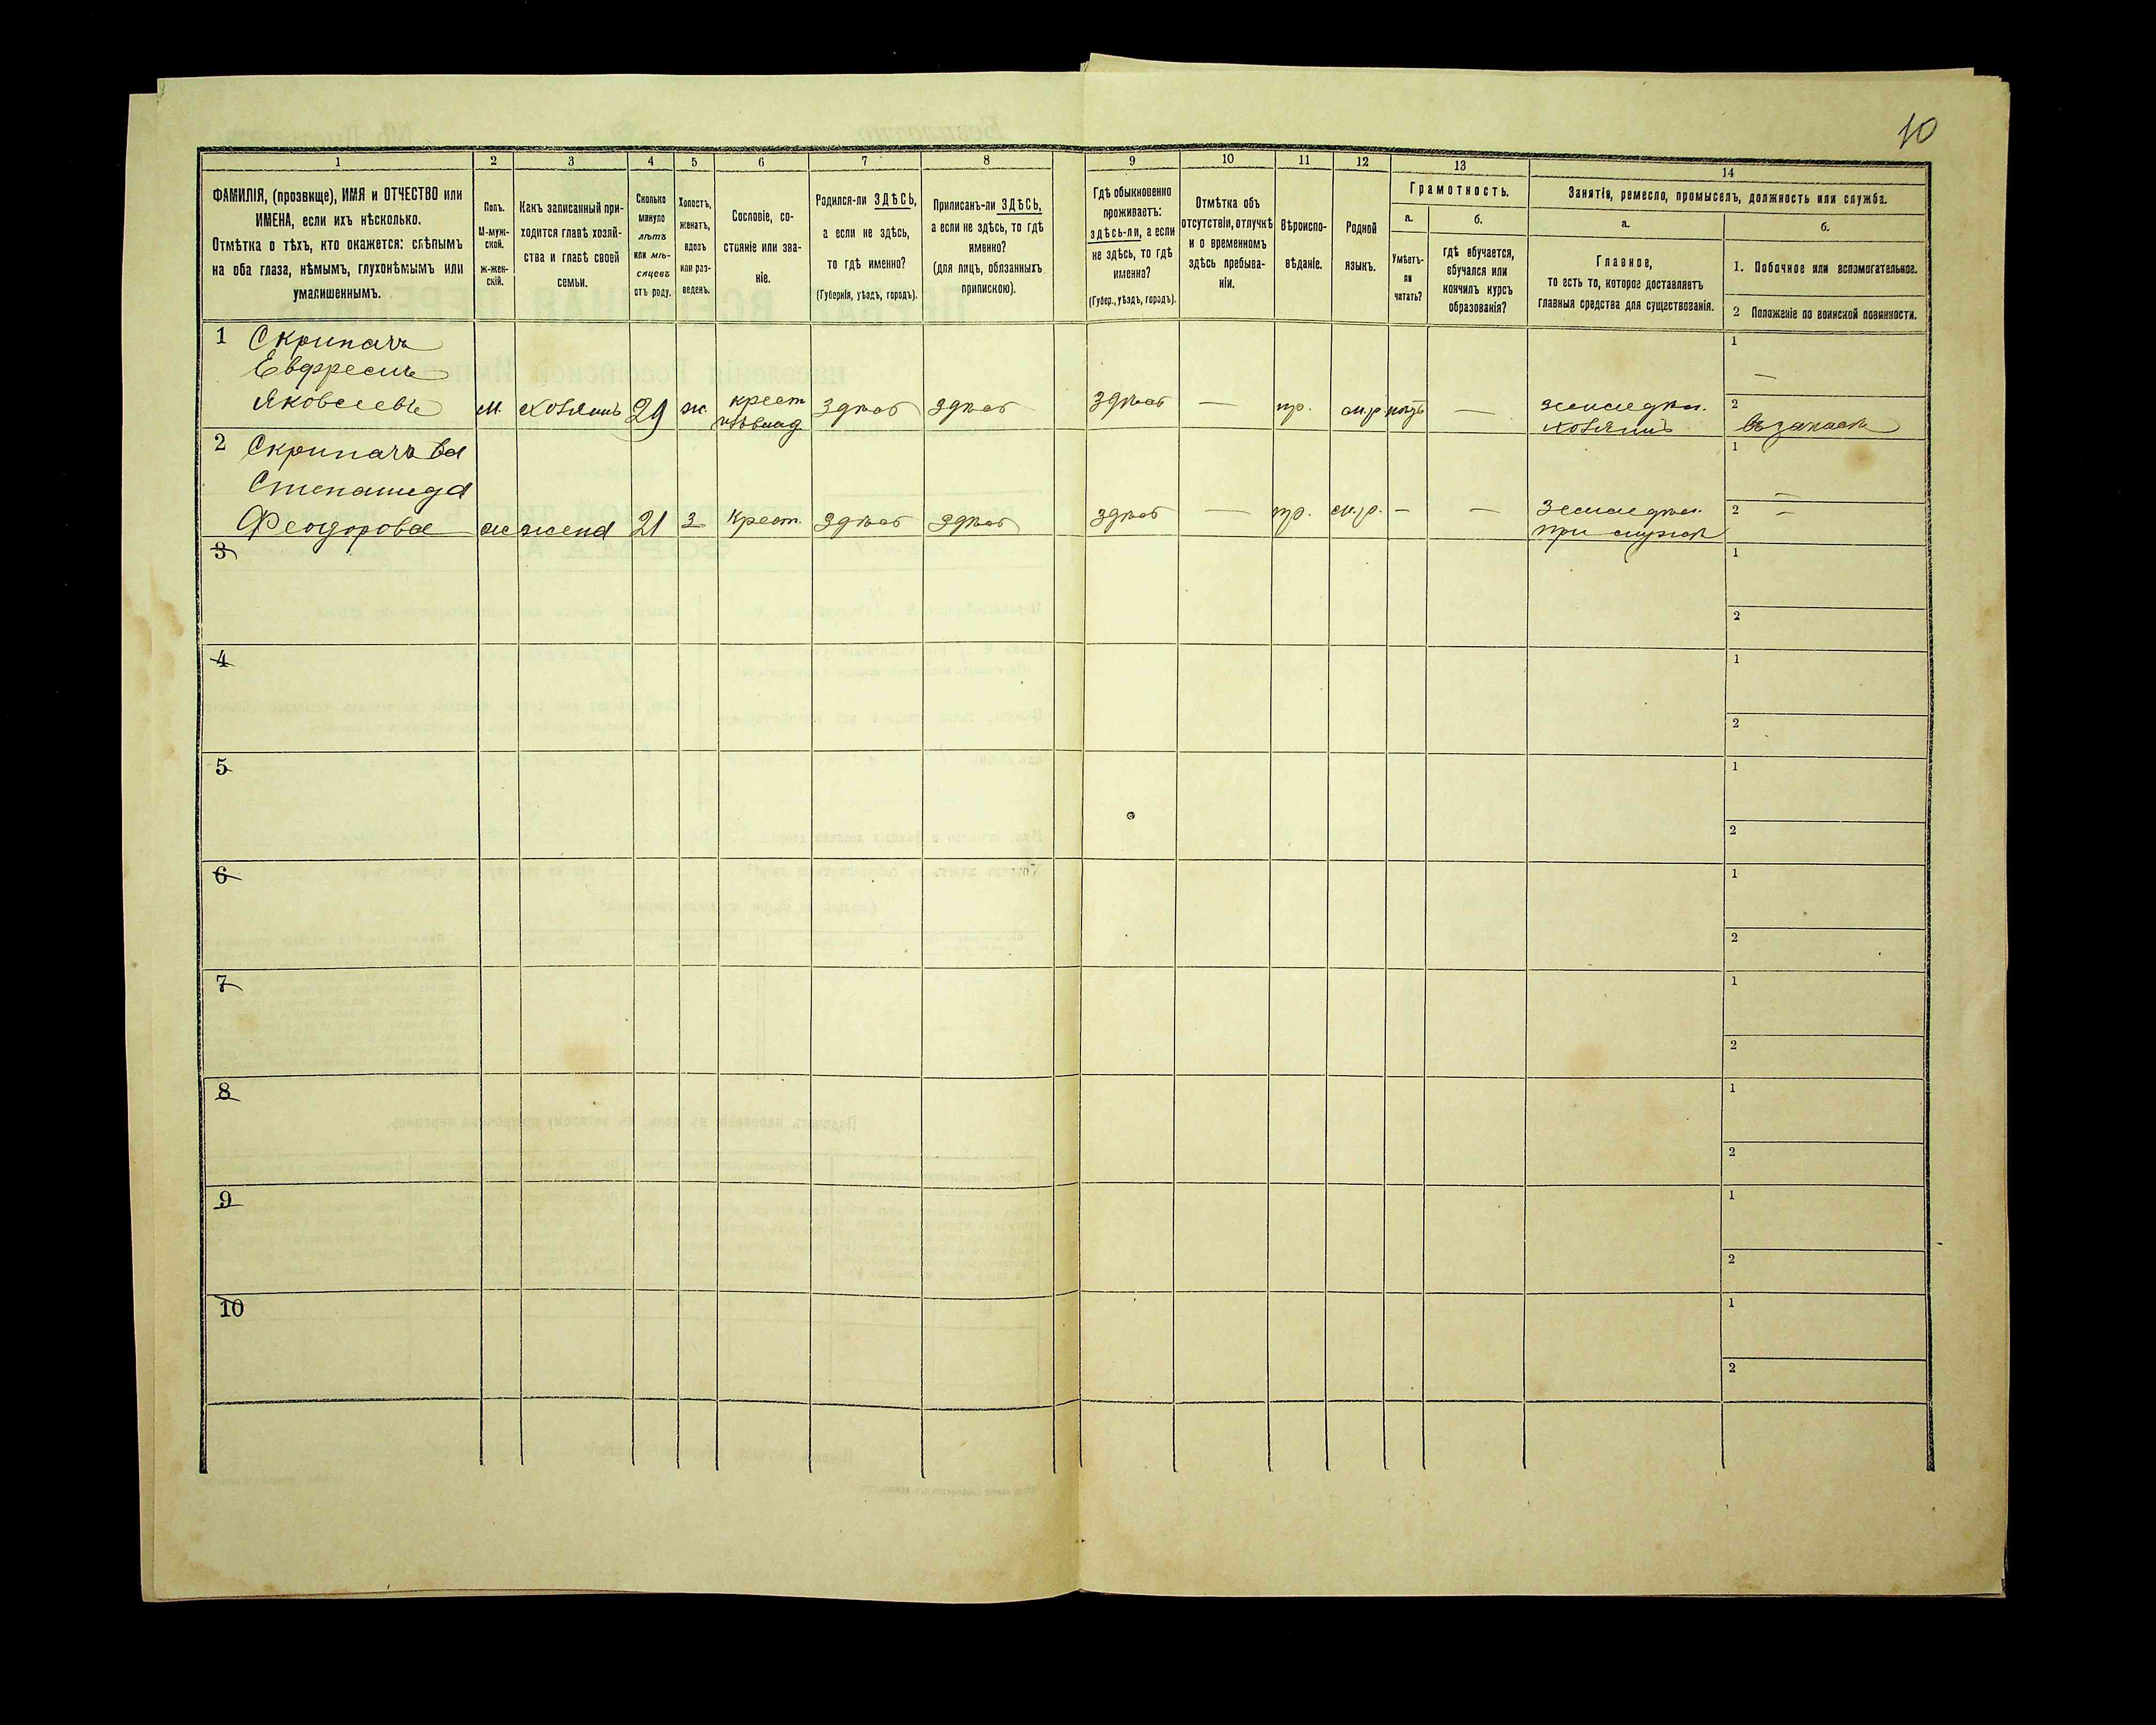 10
1 2 3 4 5 6 7 8 9 10 11 12 13 14
ФАМИЛІЯ, (прозвище), ИМЯ и ОТЧЕСТВО или
ИМЕНА, если ихъ нѣсколько.
Отмѣтка о тѣхъ, кто окажется: слѣпымъ
на оба глаза, нѣмымъ, глухонѣмымъ или
умалишеннымъ.
Полъ.
М-муж-
ской.
ж-жен-
скій.
Какъ записанный при-
ходится главѣ хозяй-
ства и главѣ своей
семьи.
Сколько
минуло
лѣтъ
или мѣ-
сяцевъ
отъ роду.
Холостъ,
женатъ,
вдовъ
или раз-
веденъ.
Сословіе, со-
стояніе или зва-
ніе.
Родился-ли ЗДѢСЬ,
а если не здѣсь,
то гдѣ именно?
(Губернія, уѣздъ, городъ).
Приписанъ-ли ЗДѢСЬ,
а если не здѣсь, то гдѣ
именно?
(для лицъ, обязанныхъ
припискою).
Гдѣ обыкновенно
проживаетъ:
здѣсь-ли, а если
не здѣсь, то гдѣ
именно?
(Губер., уѣздъ, городъ).
Отмѣтка объ
отсутствіи, отлучкѣ
и о временномъ
здѣсь пребыва-
ніи.
Вѣроиспо-
вѣданіе.
Родной
языкъ.
Грамотность.
а.
Умѣетъ-
ли
читать?
б.
гдѣ обучается,
обучался или
кончилъ курсъ
образованія?
Занятія, ремесло, промыселъ, должность или служба.
а.
Главное,
то есть то, которое доставляетъ
главныя средства для существованія.
б.
1. Побочное или вспомогательное.
2 Положеніе по воинской повинности.
1 Скрипачъ
Евфресинъ
Яковлевъ м. хозяинъ 29 ж. крест здѣсь здѣсь здѣсь — пр. м.р. нѣтъ — земледѣл.
хозяинъ
1 —
2 въ запасѣ
2 Скрипачева
Степанида
Феодорова ж жена 21 з крест. здѣсь здѣсь здѣсь — пр. м.р. — — земледѣл.
при мужѣ
1 —
2 —
3
1
2
4
1
2
5
1
2
6
1
2
7
1
2
8
1
2
9
1
2
10
1
2